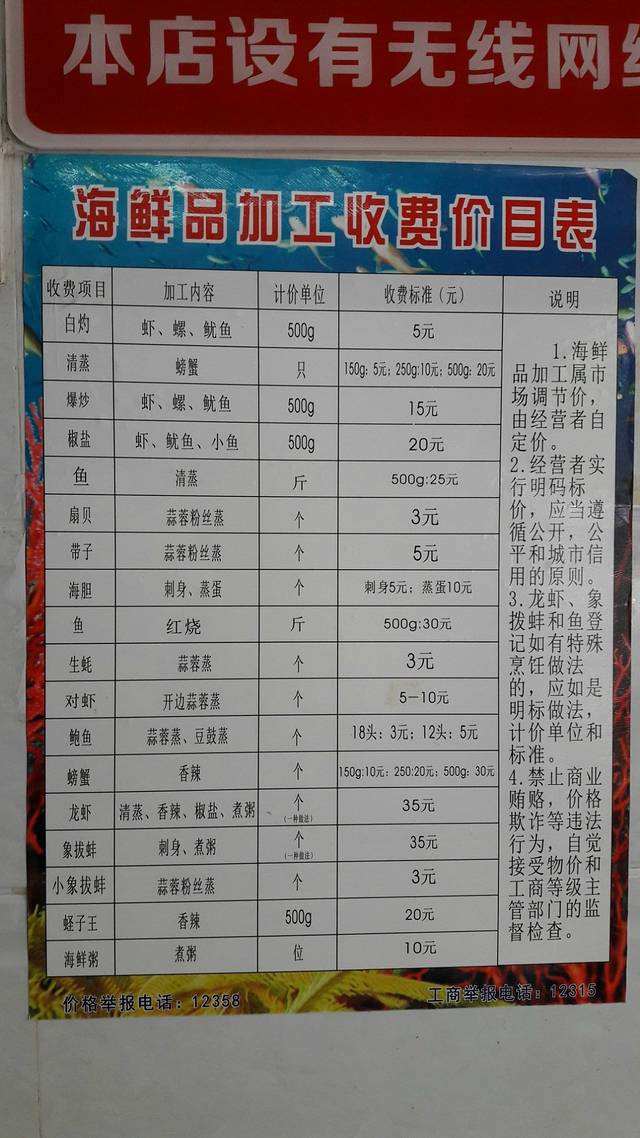 本店设有无线网
海鲜品加工收费价目表
收费项目 加工内容 计价单位 收费标准（元） 说明
白灼 虾、螺、鱿鱼 500g 5元
清蒸 螃蟹 只 150g：5元；250g:10元；500g：20元
爆炒 虾、螺、鱿鱼 500g 15元
椒盐 虾、鱿鱼、小鱼 500g 20元
鱼 清蒸 斤 500g:25元
扇贝 蒜蓉粉丝蒸 个 3元
带子 蒜蓉粉丝蒸 个 5元
海胆 刺身、蒸蛋 个 刺身5元；蒸蛋10元
鱼 红烧 斤 500g:30元
生蚝 蒜蓉蒸 个 3元
对虾 开边蒜蓉蒸 个 5-10元
鲍鱼 蒜蓉蒸、豆鼓蒸 个 18头：3元；12头：5元
螃蟹 香辣 个 150g:10元：250:20元；500g：30元
龙虾 清蒸、香辣、椒盐、煮粥 个（一种做法） 35元
象拔蚌 刺身、煮粥 个（一种做法） 35元
小象拔蚌 蒜蓉粉丝蒸 个 3元
蛏子王 香辣 500g 20元
海鲜粥 煮粥 位 10元
1.海鲜
品加工属市
场调节价，
由经营者自
定价。
2.经营者实
行明码标
价，应当遵
循公开，公
平和城市信
用的原则。
3.龙虾、象
拨蚌和鱼登
记如有特殊
烹饪做法
的，应如是
明标做法，
计价单位和
标准。
4.禁止商业
贿赂，价格
欺诈等违法
行为，自觉
接受物价和
工商等级主
管部门的监
督检查。
价格举报电话：12358 工商举报电话：12315